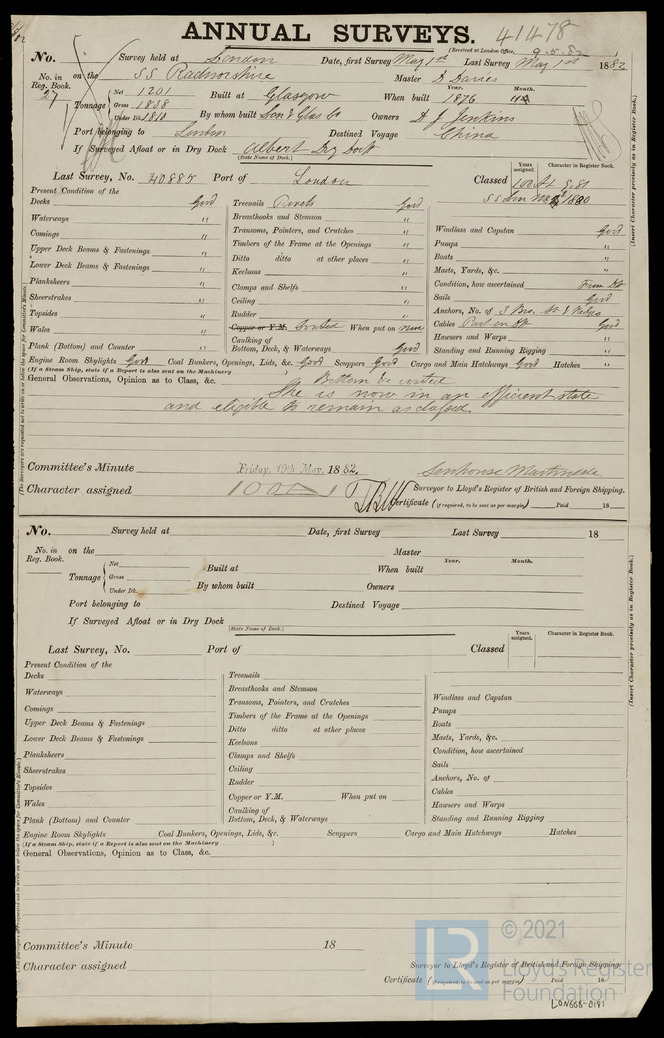 ANNUAL SURVEYS. 41478
(Received at London Office, 9-5-82)
No. Survey held at London Date, first Survey May 1st Last Survey May 1st 1882
No. in Reg. Book. 27 on the SS Radnorshire Master D Davies
Tonnage Net 1201 Gross 1858 Under Dk. 1810 Built at Glasgow When built Year. 1876 Month.
By whom built Lon & Glas Co Owners D J Jenkins
Port belonging to London Destined Voyage China
If Surveyed Afloat or in Dry Dock Albert Dry Dock
(State Name of Dock.)
Last Survey, No. 40885 Port of London Classed Years assigned. 100A1 Character in Register Book. 5.81
SS Lon 1880
Present Condition of the
Decks Good
Waterways "
Comings "
Upper Deck Beams & Fastenings "
Lower Deck Beams & Fastenings "
Planksheers "
Sheerstrakes "
Topsides "
Wales "
Plank (Bottom) and Counter "
Treenails Rivets Good
Breasthooks and Stemson "
Transoms, Pointers, and Crutches "
Timbers of the Frame at the Openings "
Ditto ditto at other places "
Keelsons "
Clamps and Shelfs "
Ceiling "
Rudder "
Copper or Y.M. Coated When put on now
Caulking of Bottom, Deck, & Waterways Good
Windlass and Capstan Good
Pumps "
Boats "
Masts, Yards, &c. "
Condition, how ascertained From Dk
Sails Good
Anchors, No. of 3 Bro.
Cables Part on Dk Good
Hawsers and Warps "
Standing and Running Rigging "
Engine Room Skylights Good Coal Bunkers, Openings, Lids, &c. Good Scuppers Good Cargo and Main Hatchways Good Hatches "
(If a Steam Ship, state if a Report is also sent on the Machinery )
General Observations, Opinion as to Class, &c. Bottom be coated
She is now in an efficient state
and eligible to remain as classed.
Committee's Minute Friday, 19th May, 1882.
Senhouse Martindale
Character assigned 100A1
Surveyor to Lloyd's Register of British and Foreign Shipping.
Certificate (if required, to be sent as per margin) Paid 18
(The Surveyors are requested not to write on or below the space for Committee's Minute.)
(Insert Character precisely as in Register Book.)
No. Survey held at Date, first Survey Last Survey 18
No. in Reg. Book. on the Master
Tonnage Net Gross Under Dk. Built at When built Year. Month.
By whom built Owners
Port belonging to Destined Voyage
If Surveyed Afloat or in Dry Dock
(State Name of Dock.)
Last Survey, No. Port of Classed Years assigned. Character in Register Book.
Present Condition of the
Decks
Waterways
Comings
Upper Deck Beams & Fastenings
Lower Deck Beams & Fastenings
Planksheers
Sheerstrakes
Topsides
Wales
Plank (Bottom) and Counter
Treenails
Breasthooks and Stemson
Transoms, Pointers, and Crutches
Timbers of the Frame at the Openings
Ditto ditto at other places
Keelsons
Clamps and Shelfs
Ceiling
Rudder
Copper or Y.M. When put on
Caulking of Bottom, Deck, & Waterways
Windlass and Capstan
Pumps
Boats
Masts, Yards, &c.
Condition, how ascertained
Sails
Anchors, No. of
Cables
Hawsers and Warps
Standing and Running Rigging
Engine Room Skylights Coal Bunkers, Openings, Lids, &c. Scuppers Cargo and Main Hatchways Hatches
(If a Steam Ship, state if a Report is also sent on the Machinery )
General Observations, Opinion as to Class, &c.
Committee's Minute 18
Character assigned
Surveyor to Lloyd's Register of British and Foreign Shipping.
Certificate (if required, to be sent as per margin) Paid 18
(The Surveyors are requested not to write on or below the space for Committee's Minute.)
(Insert Character precisely as in Register Book.)
LR © 2021
Lloyd's Register
Foundation
LON666-0191